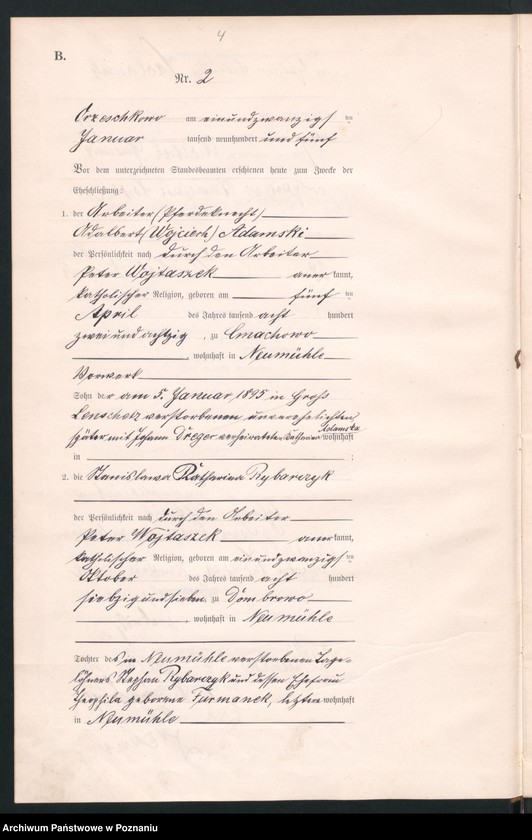 4
B.
Nr. 2
Orzeschkowo am einundzwanzigsten
Januar tausend neunhundert und fünf
Vor dem unterzeichneten Standesbeamten erschienen heute zum Zwecke der
Eheschließung:
1. der Arbeiter (Pferdeknecht)
Adalbert (Wojciech) Adamski
der Persönlichkeit nach durch den Arbeiter
Peter Wojtaszek anerkannt,
katholischer Religion, geboren am fünften
April des Jahres tausend acht hundert
zweiundachtzig, zu Cmachowo
, wohnhaft in Neumühle
Vorwerk
Sohn der am 5. Januar 1895 in Groß
Lenschetz verstorbenen unverehelichten,
später mit Johann Dreger verheirateten Katharina Adamska wohnhaft
in ;
2. die Stanislawa Katharina Rybarczyk
der Persönlichkeit nach durch den Arbeiter
Peter Wojtaszek anerkannt,
katholischer Religion, geboren am einundzwanzigsten
Oktober des Jahres tausend acht hundert
siebzigundsieben zu Dombrowo
, wohnhaft in Neumühle
Tochter des in Neumühle verstorbenen Tage-
löhners Stephan Rybarczyk und dessen Ehefrau
Theophila geborene Furmanek, letztere wohnhaft
in Neumühle
Archiwum Państwowe w Poznaniu